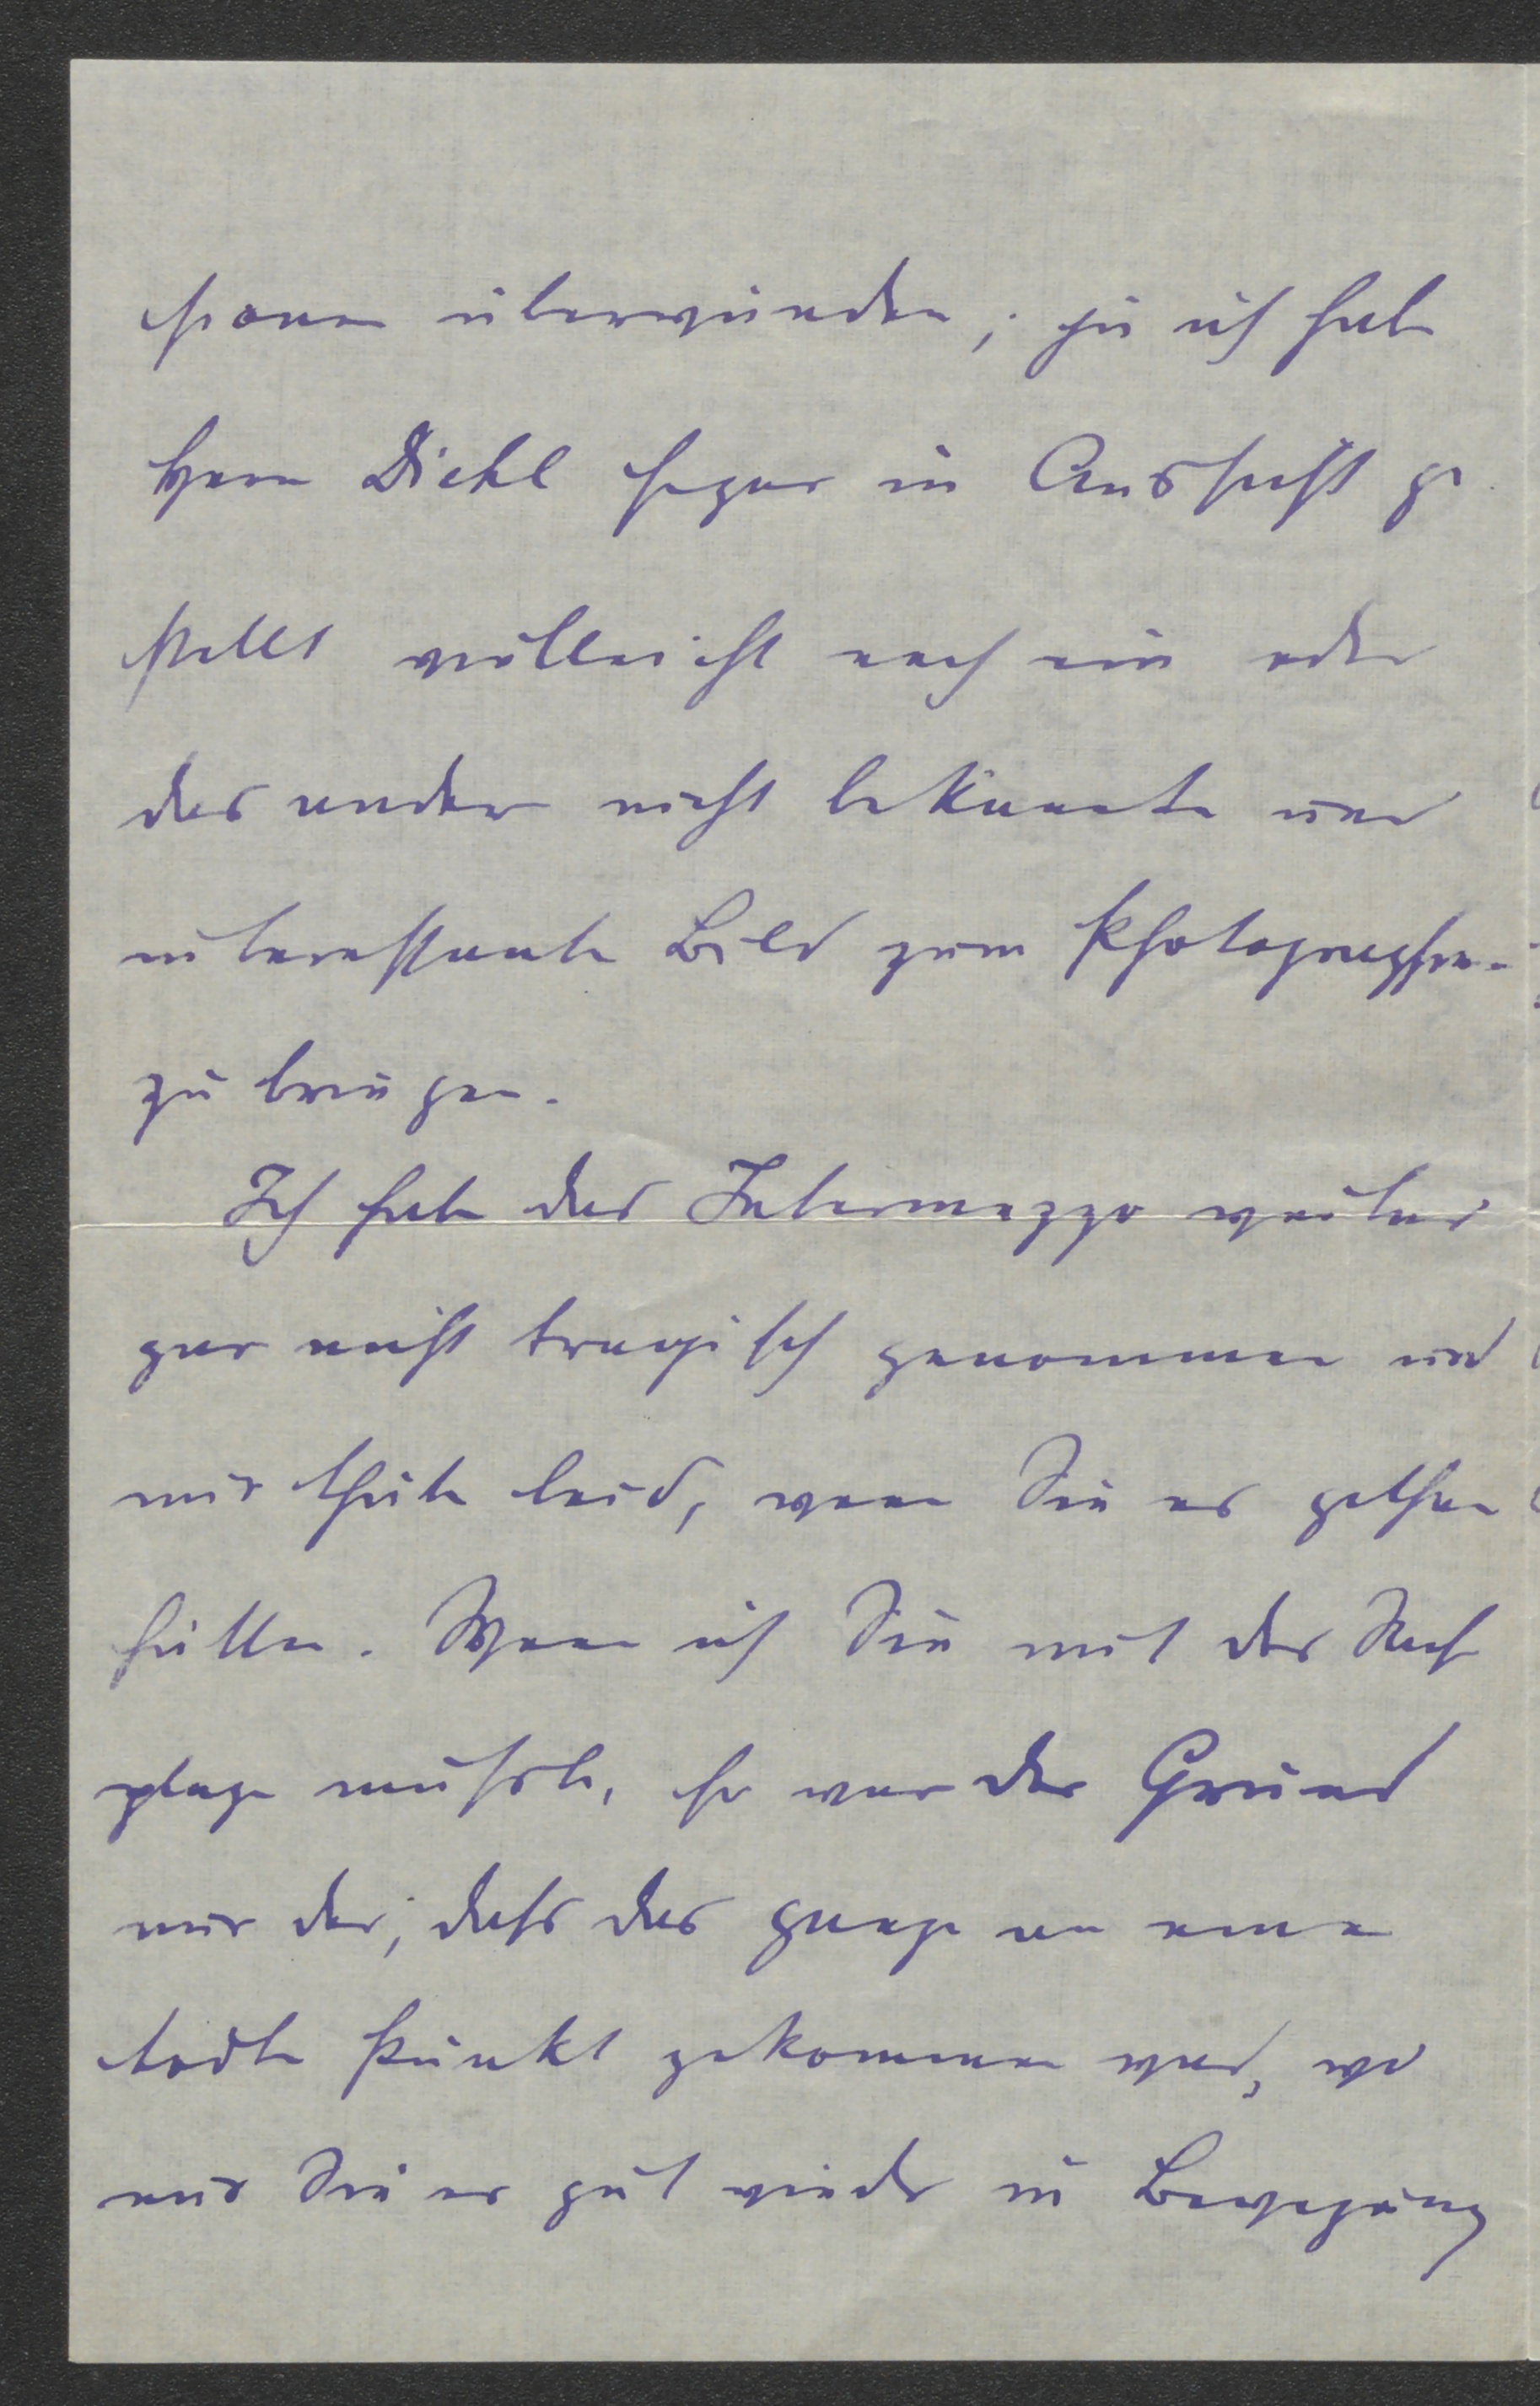 überwunden; ja ich habe
Herrn Diehl sogar in Aussicht ge
stellt vielleicht noch ein oder
das andere nicht bekannte und
interessante Bild zum Photographen
zu bringen.
Ich habe das Intermezzo weiter
gar nicht tragisch genommen und
mir thäte leid, wenn Sie es gethan
hätten. Wenn ich Sie mit der Sache
plagen mußte, so war der Grund
nur der, daß das ganze an einem
todten Punkt gekommen war, wo
nur Sie es gut wieder in Bewegung